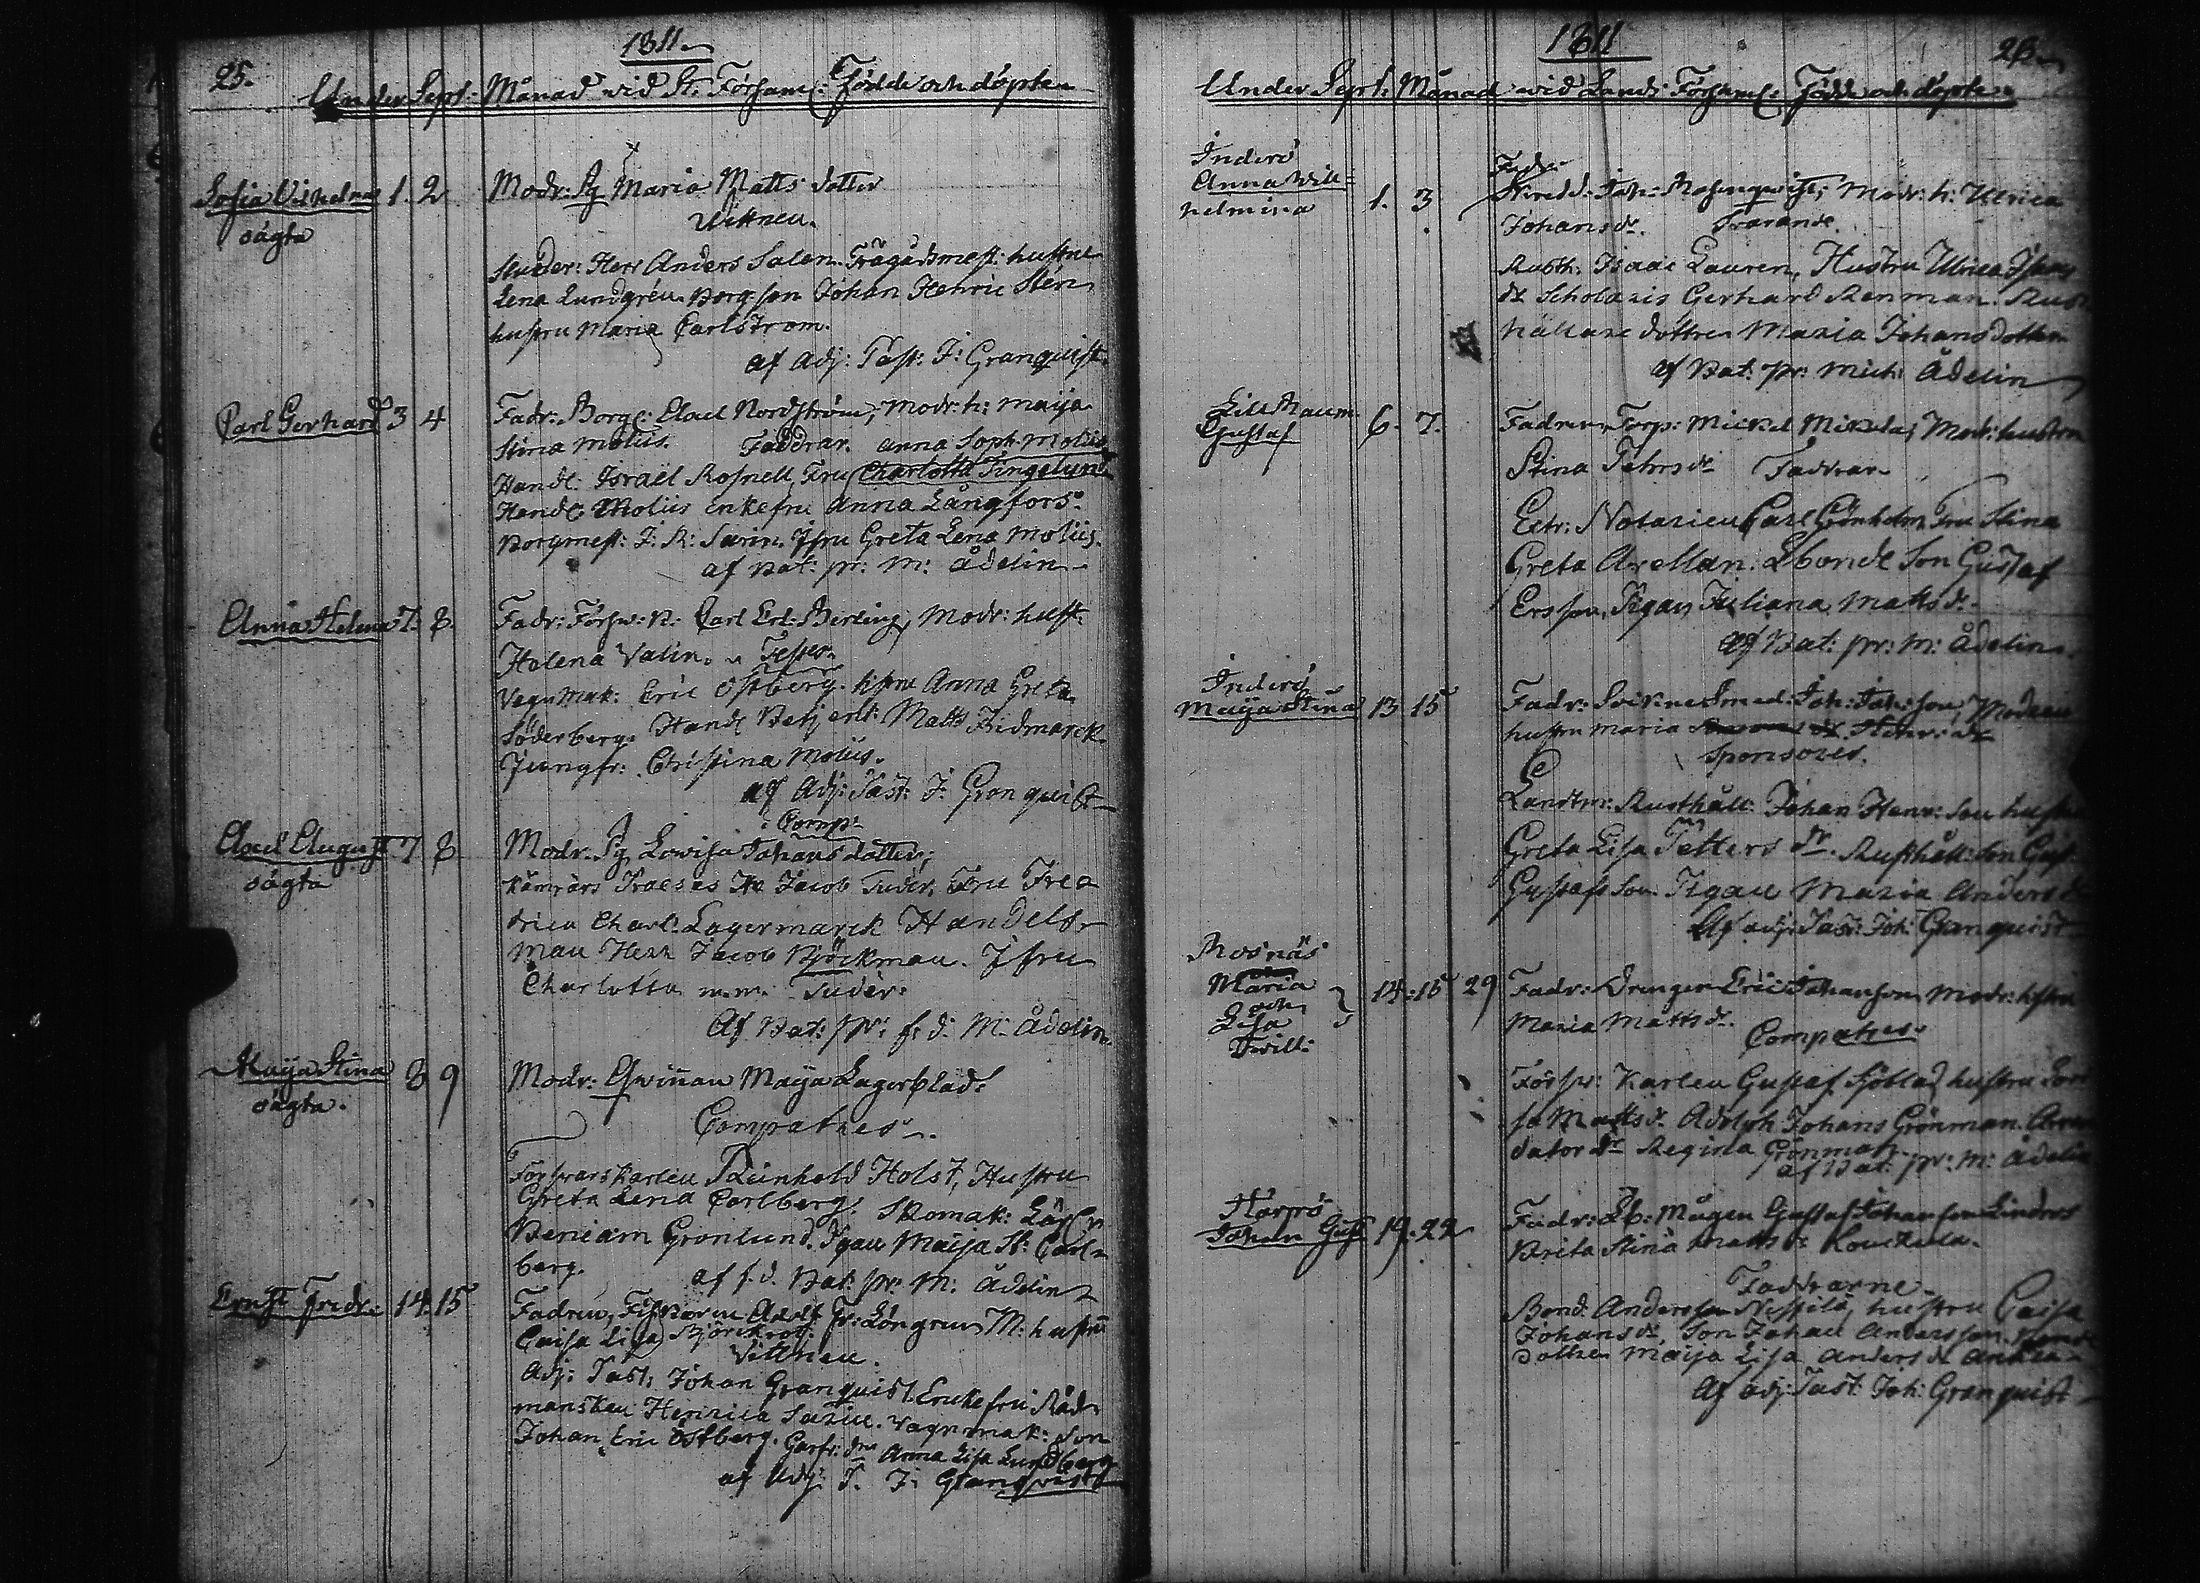 25.
1811.
Under Sept: Månad vid St. Församl: Födde och döpte
Sofia Vilhelma 1. 2
oägta
Modr: Pg Maria Matts dotter
Wittnen.
Studer: Herr Anders Salen. Trägårdsmest: hustru
Lena Lundgrén. Borg. son Johan Henric Stén
hustru Maria Carlström.
af Adj: Past: J: Granquist.
Carl Gerhard 3 4
Fadr: Borg: Axel Nordström, Modr: h: Maija
Stina Molüs. Faddrar. Anna Soph. Molüs
Handl: Israël Rosnell, Fru Charlotta Tingelund
Handl: Molüs enkefru Anna Långfors.
Borgmest: J: R: Sarin. Jfru Greta Lena Molüs.
af Bat: pr: M: Ådelin
Anna Helena 7. 8.
Fadr: Förs: K: Carl Er: Berling, Modr: hust:
Helena Valin. Testes.
Vagnmak: Eric Östberg. hstru Anna Greta
Söderberg. Handl Betjent: Matts Widmarck.
Jungfr: Christina Molüs.
af Adj: Past: J: Granquist
Axel August 7 8
oägta
Comp:
Modr. Pg Lowisa Johansdotter;
Kämnärs Præses Hr Jacob Tudér, Fru Fred
rica Charl: Lagermarck Handels
man Herr Jacob Björkman. Jfru
Charlotta m.m. Tudér.
Af Bat: pr: f: d: M: Ådelin.
Maija Stina 8 9
oägta.
Modr: Qwinnan Maija Lagerblad.
Compatres
Försvars karlen Reinhold Holst, Hustru
Greta Lena Carlberg. Skomak: Lärl:
Beniam Grönlund. Pgan Maija St: Carl
berg.
af f. d. Bat. pr. M: Ådelin
Ernst Fredr. 14. 15
Fadren, Fiskaren Adolf Fr: Löngren M: hustru
Caisa Lisa Björkrot.
Vittnen.
Adj: Past: Johan Granquist. Enkefru Råd
manskan Henrica Sarin. Vagnmak: son
Johan Eric Östberg. Garfr: dr Anna Lisa Lundberg
af Adj: P. J: Granqvist
1811
26
Under Sept: Månad vid Lands Församl: Födde och döpte
Inderö
Anna Will=
helmina 1. 3
Fadr
Joh: Rosenqwist, Modr: h: Ulrica
Johans dr. Svarande.
Rusth: Isaac Lauren, Hustru Ulrica
dr Scholaris Gerhard Renman. Rust
hållare dottren Maria Johans dotter
af Bat: pr: Mich: Ådelin
Lill Raum.
Gustaf 6. 7.
Fadren, Torp: Mickel Mikola; Modr: hustru
Stina Pehrs dr Faddrar
Extr: Notarien Carl Grönholm Fru Stina
Greta Arellan. Lbonde Son Gustaf
Ersson, Pigan Juliana Matts dr.
af Bat: pr: M: Ådelin.
Inderö
Maija Stina 13 15
Fadr: Sockne Smed: Joh: Joh: son, Modren
hustru Maria Henr: dr
Sponsores.
Landtm: Rusthåll: Johan Henr: Son hustru
Greta Lisa Petters dr. Rusthåll: Son Gust:
Gustafs Son. Pigan Maria Anders dr
Af adj: Past: Joh: Granquist
Rosnäs
Maria
och
Lisa
Twill: 14. 15 29
Fadr: Drengen Eric Johansson, Modr: hstru
Maria Matts dr.
Compatres
Försv: Karlen Gustaf Sjöblad, hustru Lovi
sa Matts dr. Adolph Johans Grönman. Arren
dator dr Regina Grönman.
af Bat: pr: M: Ådelin
Harrö
Johan Gust 19. 22
Fadr: Lb: Mågen Gustaf Johansson Lindros
Brita Stina Matts dr Louckula.
Faddrarne
Bond: Andersson Nissilä, hustru Caisa
Johans dr, Son Johan Andersson. Bond
dottren Maija Lisa Anders dr
Af adj: Past: Joh: Granquist